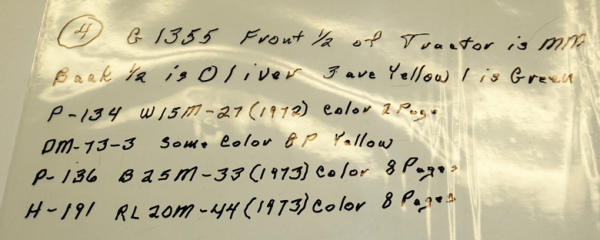 4 G 1355 Front 1/2 of Tractor is MM
Back 1/2 is Oliver 3 are Yellow 1 is Green
P-134 W15M-27 (1972) Color 2 Page
DM-73-3 Some Color 8P Yellow
P-136 B25M-33 (1973) Color 8 Pages
H-191 RL20M-44 (1973) Color 8 Pages